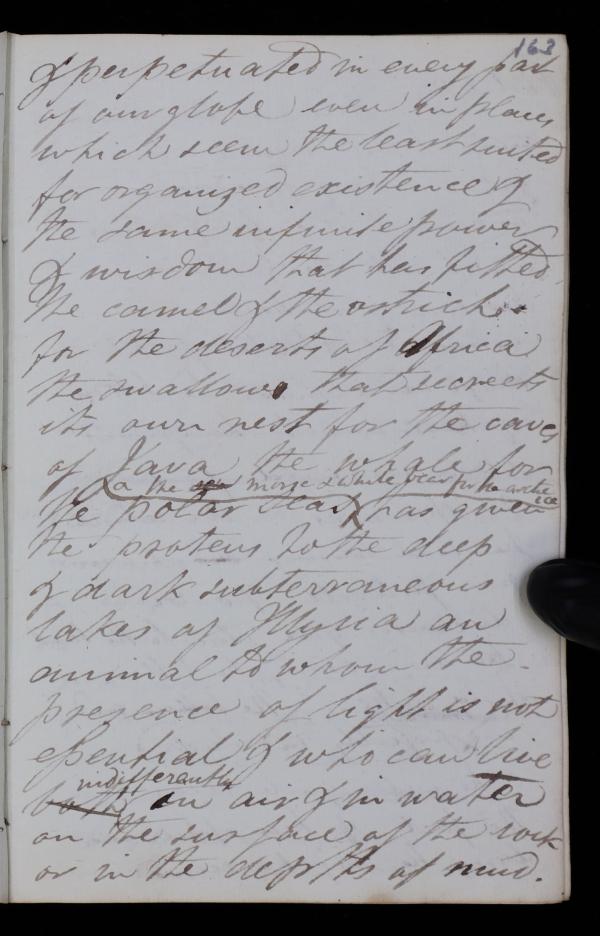 163
& perpetuated in every part
of our globe even in places
which seem the least suited
for organized existence &
the same infinite power
& wisdom that has fitted
the camel & the ostrich
for the deserts of Africa
the swallow that secretes
its own nest for the caves
of Java the whale for
& the morse & white bear for the arctic ice
the polar seas has given
the proteus to the deep
& dark subterraneous
lakes of Illyria an
animal to whom the
presence of light is not
essential & who can live
indifferently
both in air & in water
on the surface of the rock
or in the depths of mud.